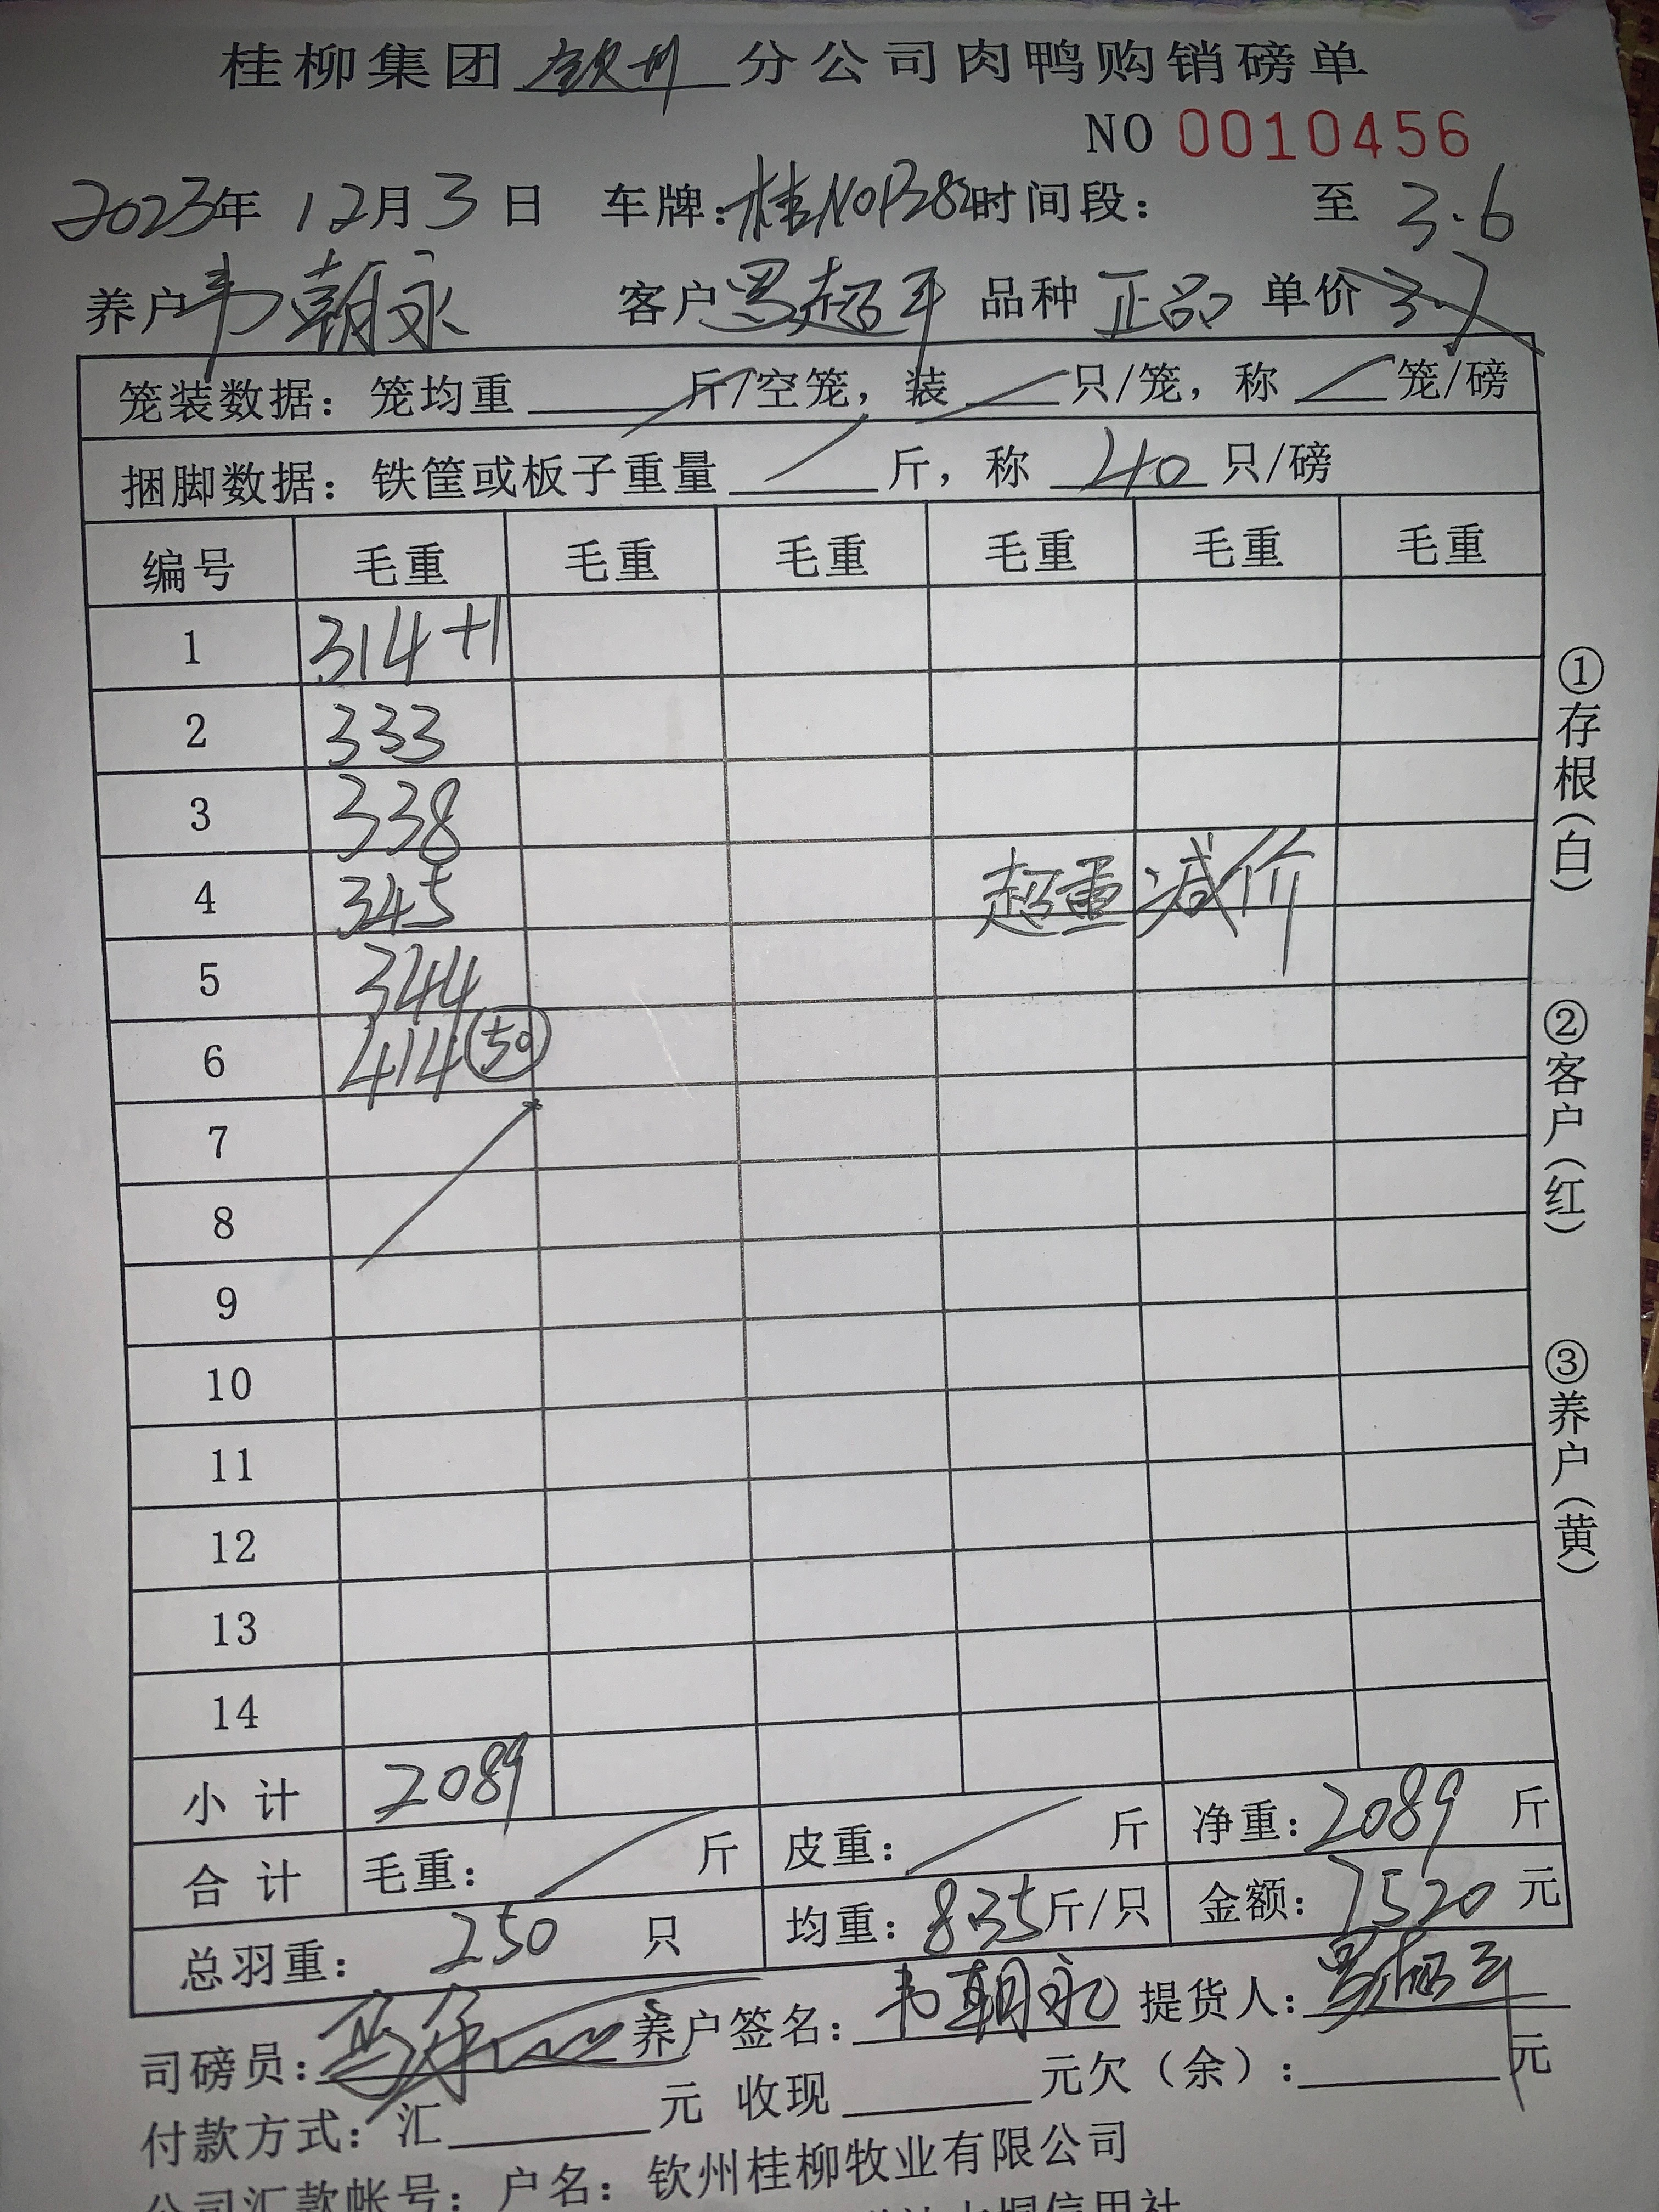 桂柳集团 钦州 分公司肉鸭购销磅单
NO 0010456
2023年 12月 3日 车牌:桂N0P282时间段: 至 3.6
养户韦朝永 客户罗超平 品种 正品 单价 3.7
笼装数据: 笼均重 斤/空笼, 装 只/笼, 称 笼/磅
捆脚数据: 铁筐或板子重量 斤, 称 40 只/磅
编号 毛重 毛重 毛重 毛重 毛重 毛重
1 314+1
2 333
3 338
4 345 超重减价
5 344
6 414 50
7
8
9
10
11
12
13
14
小计 2089
合计 毛重: 斤 皮重: 斤 净重: 2089 斤
总羽重: 250 只 均重: 8.35斤/只 金额: 7520 元
司磅员: 养户签名: 韦朝永 提货人: 罗超平
付款方式: 汇 元 收现 元欠(余): 元
公司汇款帐号: 户名: 钦州桂柳牧业有限公司
信用社
①存根(白)
②客户(红)
③养户(黄)